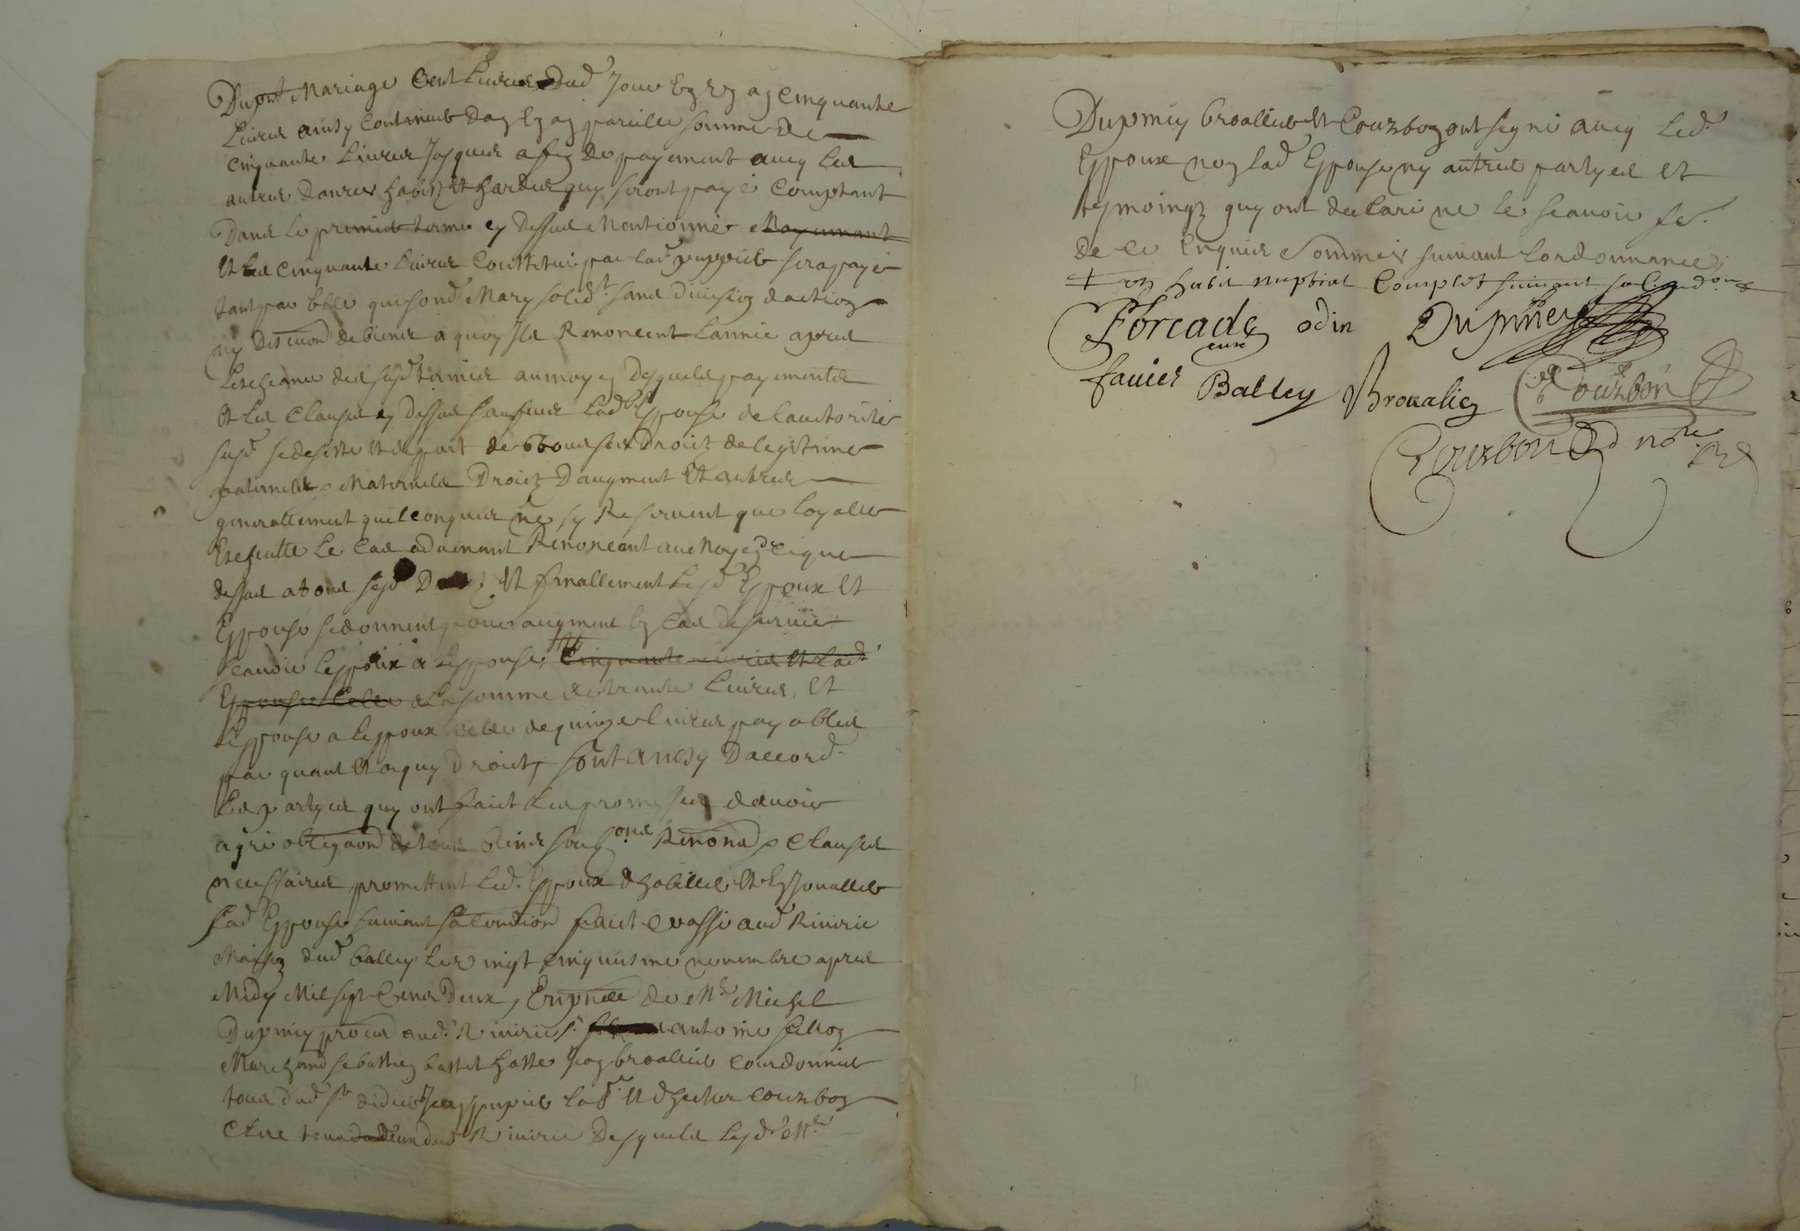 Dupnt Mariage Cent Livres Dud Jour En Un an Cinquante
Livres ainsy Continuer Dan En an pareille somme de
Cinquante Livres Jusques a fin de payement aveq les
autres Danres habitz Et hardes quy seront payé Comptant
Dans le premier terme cy Dessus Mentionné Moyennant
Et les Cinquante Livres Constitué par lad puppier sera payé
tant par Elle que sond Mary solidt sans division daction
ny Discution de biens a quoy Ils Renoncent Lannée apres
Lescheance des susd termes au moyen Desquels payements
Et les Clauses cy Dessus sauf lad Espouse de Lauthorité
susd se desiste Et despart de tous ses Droitz de legitime
paternelle Maternelle Droitz Daugment Et autres
generallement quelconques ne sy Reservant que loyalle
Escheutte Le Cas advenant Renonceant au Moyen que
dessus a tous sesd D Et finallement Lesd Espoux Et
Espouse se donnent pour augment En Cas de survie
scavoir Lespoux a Lespouse Cinquante Livres Et lad
Espouse Celle La somme de trante Livres, Et
Lespouse a Lespoux Celle de quinze Livres payables
par quant Et a quy Droict, sont ainsy Daccord
Les partyes quy ont faict Les promesses davoir
agré obligaon de leurs biens soubons Renons Clauses
necessaires promettant Led. Espoux dhabiller Et Enjoualler
lad Espouse suivant sa Condition faict & passé aud Riverie
Maison dud balley Le vingt cinquiesme novembre apres
Midy Mil sept Cens Deux, En pnce de Mr Michel
Dupiney procur aud Riverie sr antoine fellon
Marchand sebastien hoste Jean broallier Courdonnier
tous dud st didier Jean puppier Labr Et dhector Courbon
Clerc dud Riverie Desquels Lesd Mr
Dupiney broallier Et Courbon ont signé aveq Led.
Espoux non lad Espouse ny autres partyes Et
tesmoingz quy ont declaré ne le scavoir fe.
de ce Enquis & sommés suivant Lordonnance
+ un habit nuptial Complet suivant sa Condon
Forcade odin Dupiney
favier Balley Broualie Courbon
Courbon nore Rl